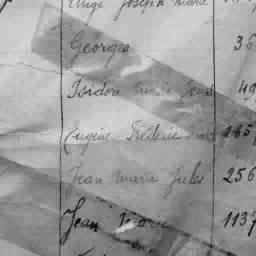 Ange Joseph Marie
Georges 36
Isidore 49
Eugène Frédéric 145
Jean Marie Jules 256
Jean Marie 1137